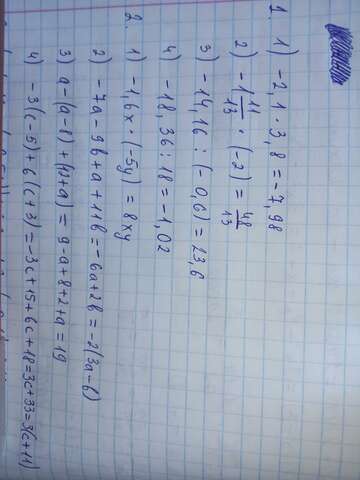 1. 1) -2,1 · 3,8 = -7,98
2) -1 11/13 · (-2) = 48/13
3) -14,16 : (-0,6) = 23,6
4) -18,36 : 18 = -1,02
2. 1) -1,6x · (-5y) = 8xy
2) -7a - 9b + a + 11b = -6a + 2b = -2(3a - b)
3) a - (a - 8) + (12 + a) = 9 - a + 8 + 2 + a = 19
4) -3(c - 5) + 6(c + 3) = -3c + 15 + 6c + 18 = 3c + 33 = 3(c + 11)